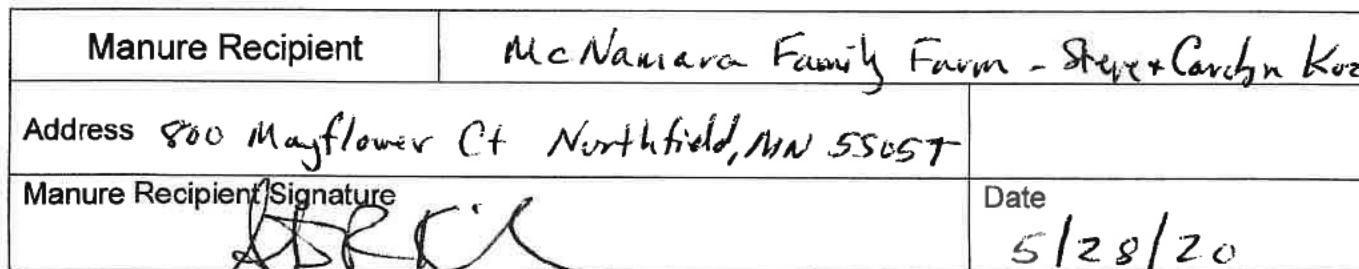 Manure Recipient McNamara Family Farm - Steve + Carolyn Koz
Address 800 Mayflower Ct Northfield, MN 55057
Manure Recipient Signature Date
5/28/20